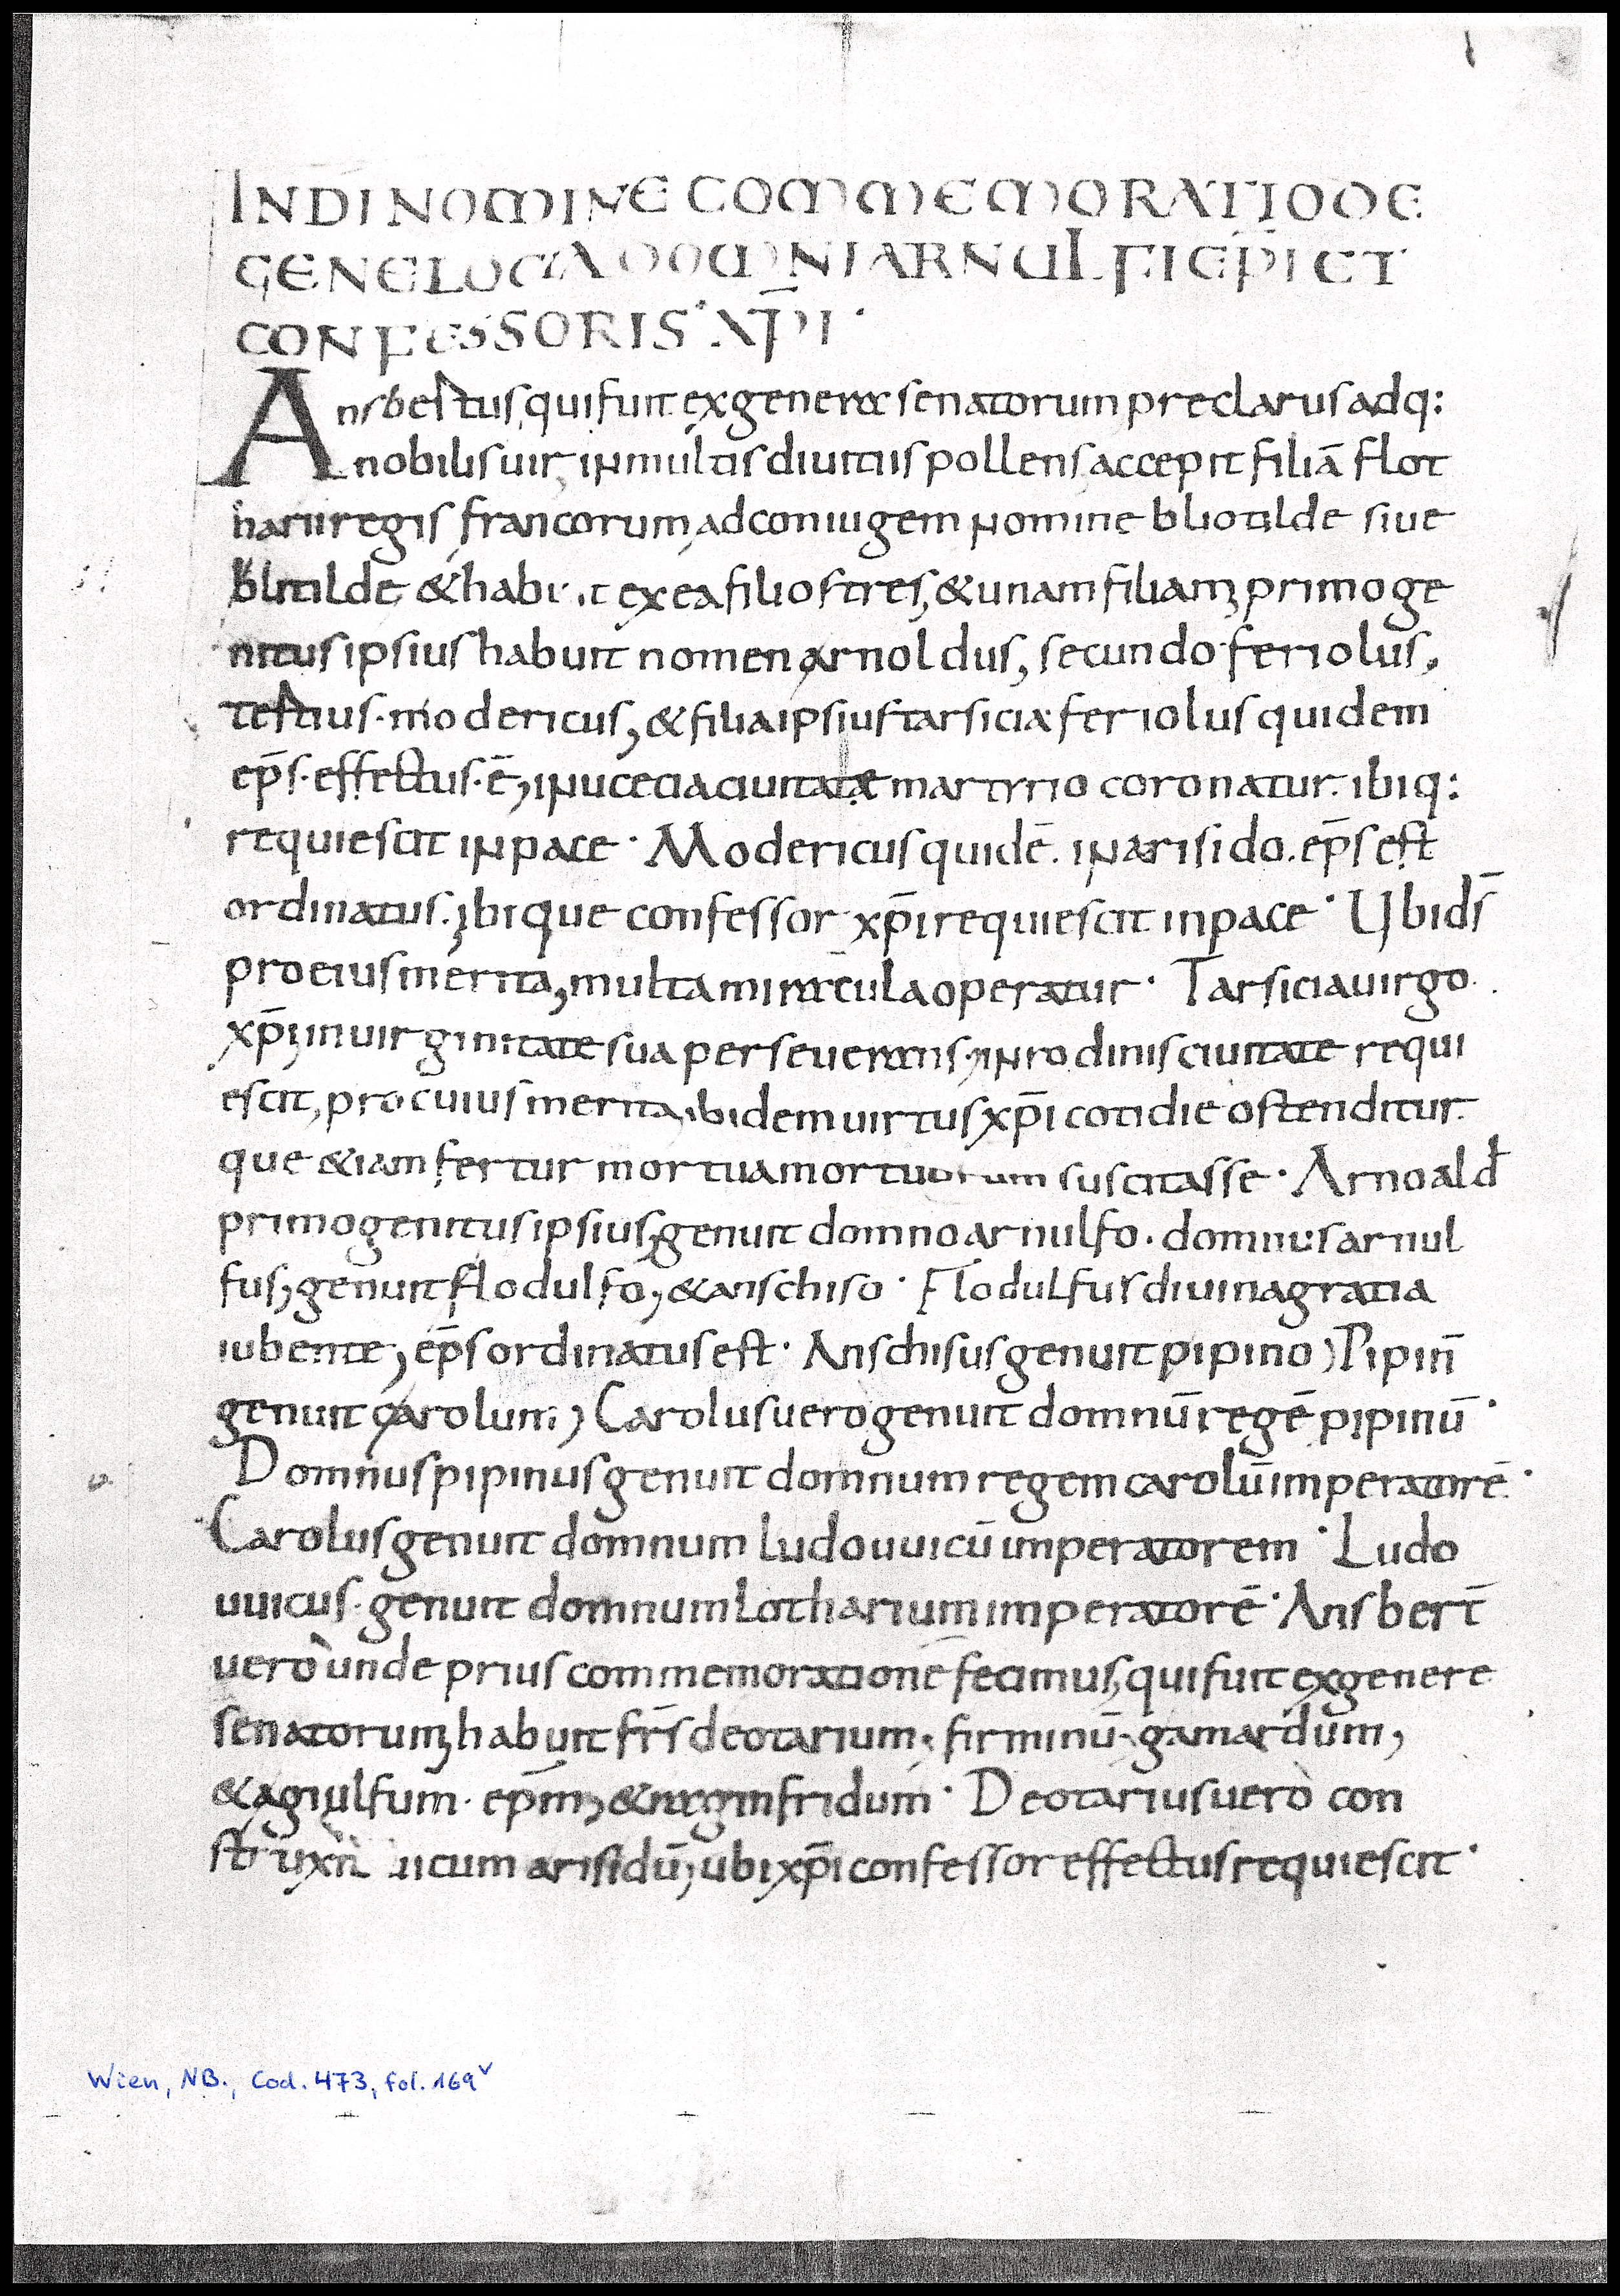 IN DI NOMINE COMMEMORATIO DE
GENELOGIA DOMNI ARNULFI EPI ET
CONFESSORIS XP̄I ·
Ansbertus qui fuit ex genere senatorum preclarus adq:
nobilis uir, in multis diuitiis pollens accepit filiā flot
harii regis francorum ad coniugem nomine bliotilde siue
blitilde & habuit ex ea filios tres, & unam filiam, primoge
nitus ipsius habuit nomen arnoldus, secundo feriolus,
tertius · modericus, & filia ipsius tarsicia · feriolus quidem
ep̄s · effectus · ē, in ucecia ciuitatæ martyrio coronatur. ibiq:
requiescit in pace · Modericus quidē. in arisido. ep̄s est
ordinatus. ibique confessor xp̄i requiescit in pace · Ubi ds̄
pro eius merita, multa miracula operatur · Tarsicia uirgo
xp̄i, in uirginitate sua perseuerans, in rodinis ciuitate requi
escit, pro cuius merita ibidem uirtus xp̄i cotidie ostenditur.
que & iam fertur mortua mortuorum suscitasse · Arnoald̄
primogenitus ipsius, genuit domno arnulfo. domnus arnul
fus, genuit flodulfo, & anschiso · Flodulfus diuina gratia
iubente, ep̄s ordinatus est · Anschisus genuit pipino, Pipin̄
genuit carolum, Carolus uero genuit domnū regē pipinū ·
Domnus pipinus genuit domnum regem carolū imperatorē ·
Carolus genuit domnum ludouuicū imperatorem · Ludo
uuicus · genuit domnum Lotharium imperatorē · Ansbert̄
uero unde prius commemorationē fecimus, qui fuit ex genere
senatorum, habuit fr̄s deotarium, firminū · gamardum,
& agiulfum · ep̄m, & raginfridum · Deotarius uero con
uicum arisidū, ubi xp̄i confessor effectus requiescit ·
Wien, NB., Cod. 473, fol. 169v